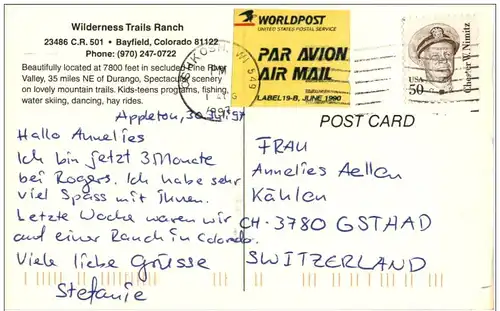 Wilderness Trails Ranch
23486 C.R. 501 • Bayfield, Colorado 81122
Phone: (970) 247-0722
Beautifully located at 7800 feet in secluded Pine River
Valley, 35 miles NE of Durango, Spectacular scenery
on lovely mountain trails. Kids-teens programs, fishing,
water skiing, dancing, hay rides.
WORLDPOST
UNITED STATES POSTAL SERVICE
PAR AVION
AIR MAIL
LABEL 19-B, JUNE 1990
OSHKOSH, WI 549
PM
1997
USA
50
Chester W. Nimitz
POST CARD
Appleton, 30. Juli 97
Hallo Annelies
Ich bin jetzt 3 Monate
bei Rogers. Ich habe sehr
viel Spass mit ihnen.
Letzte Woche waren wir
auf einer Ranch in Colorado.
Viele liebe Grüsse
Stefanie
FRAU
Annelies Aellen
Kählen
CH-3780 GSTHAD
SWITZERLAND